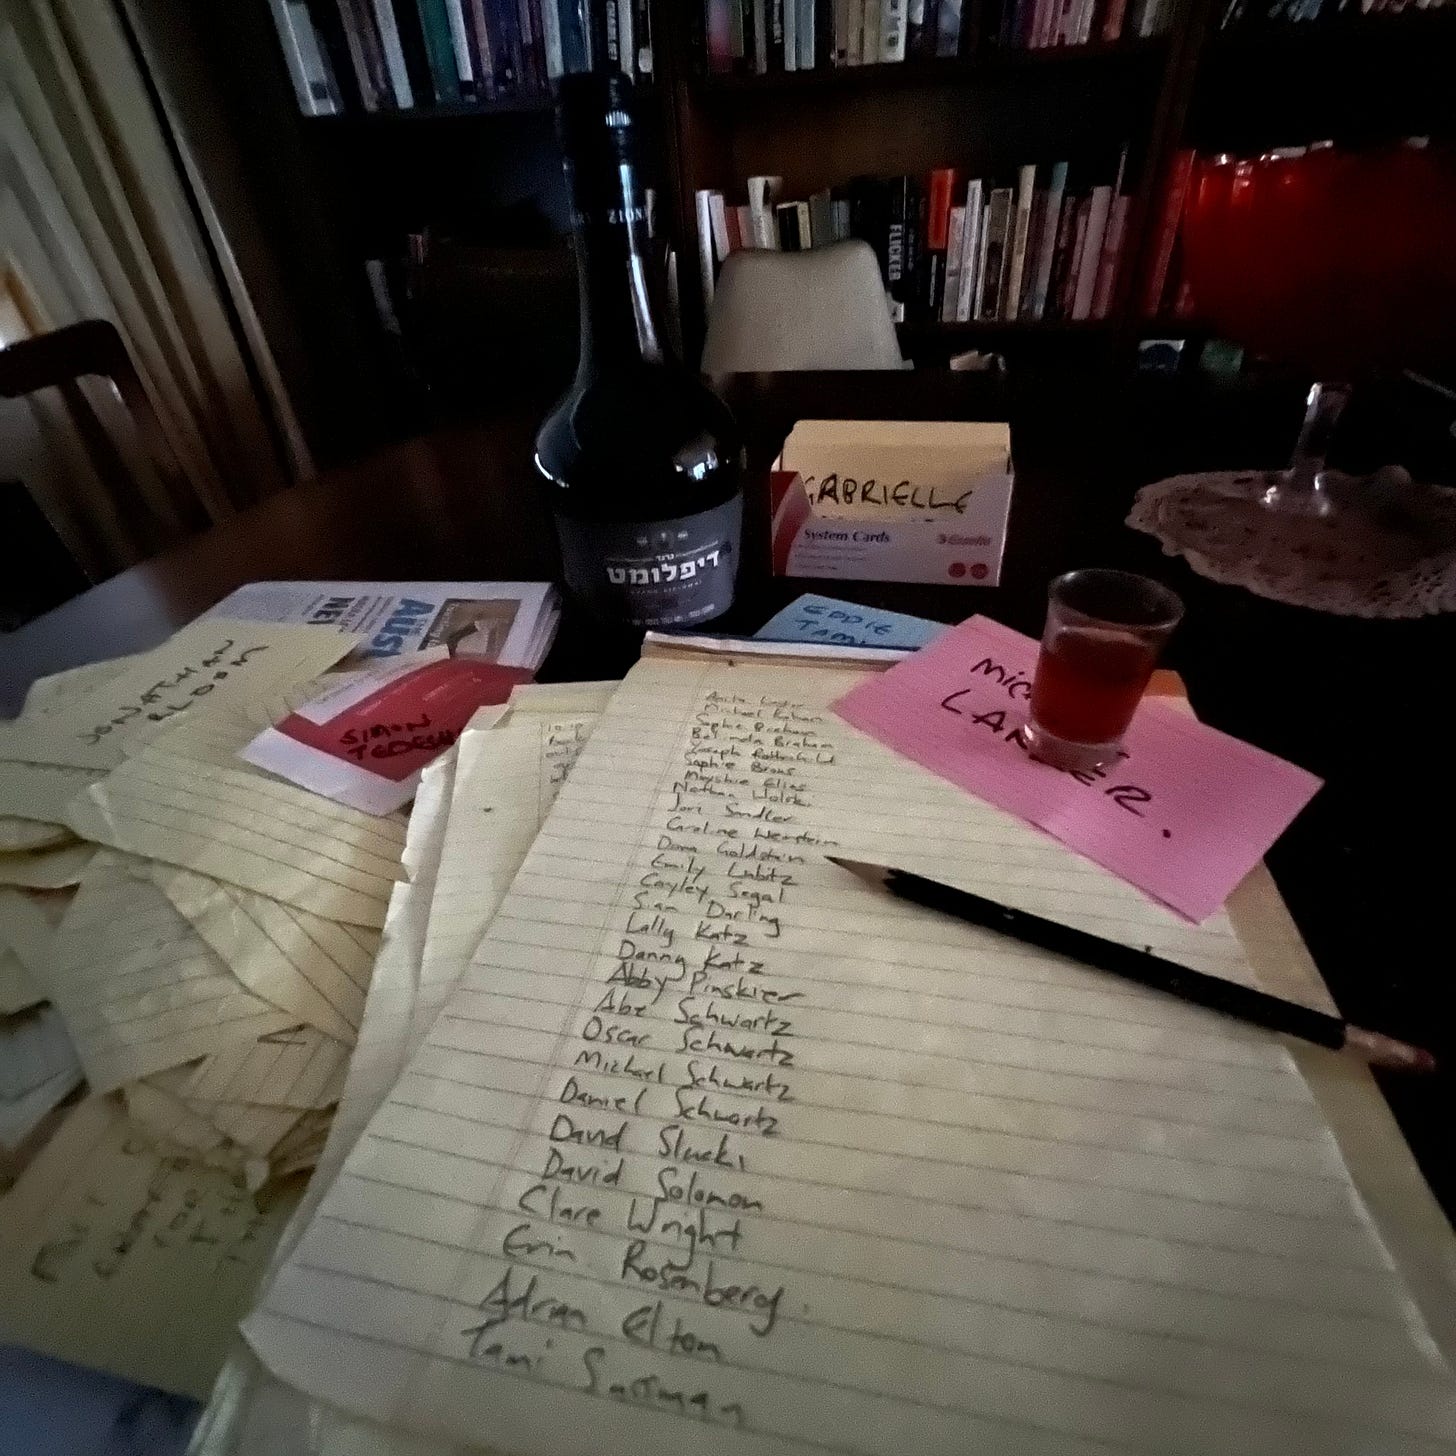 FLICKER
דיפלומט
GABRIELLE
System Cards
EDDIE
TAMI
JONATHAN
SIMON
TEDESCHI
NE
AUST
LAR
ER.
Anita
Michael
Sophie Braham
Belinda Braham
Joseph Rothschild
Sophie Brous
Moyshie Elias
Nathan Wolski
Joni Sandler
Caroline Wernstein
Dona Goldstein
Emily Lubitz
Cayley Segal
Sian Darling
Lally Katz
Danny Katz
Abby Pinskier
Abe Schwartz
Oscar Schwartz
Michael Schwartz
Daniel Schwartz
David Slucki
David Solomon
Clare Wright
Erin Rosenberg.
Adrian Elton
Tami Sussman